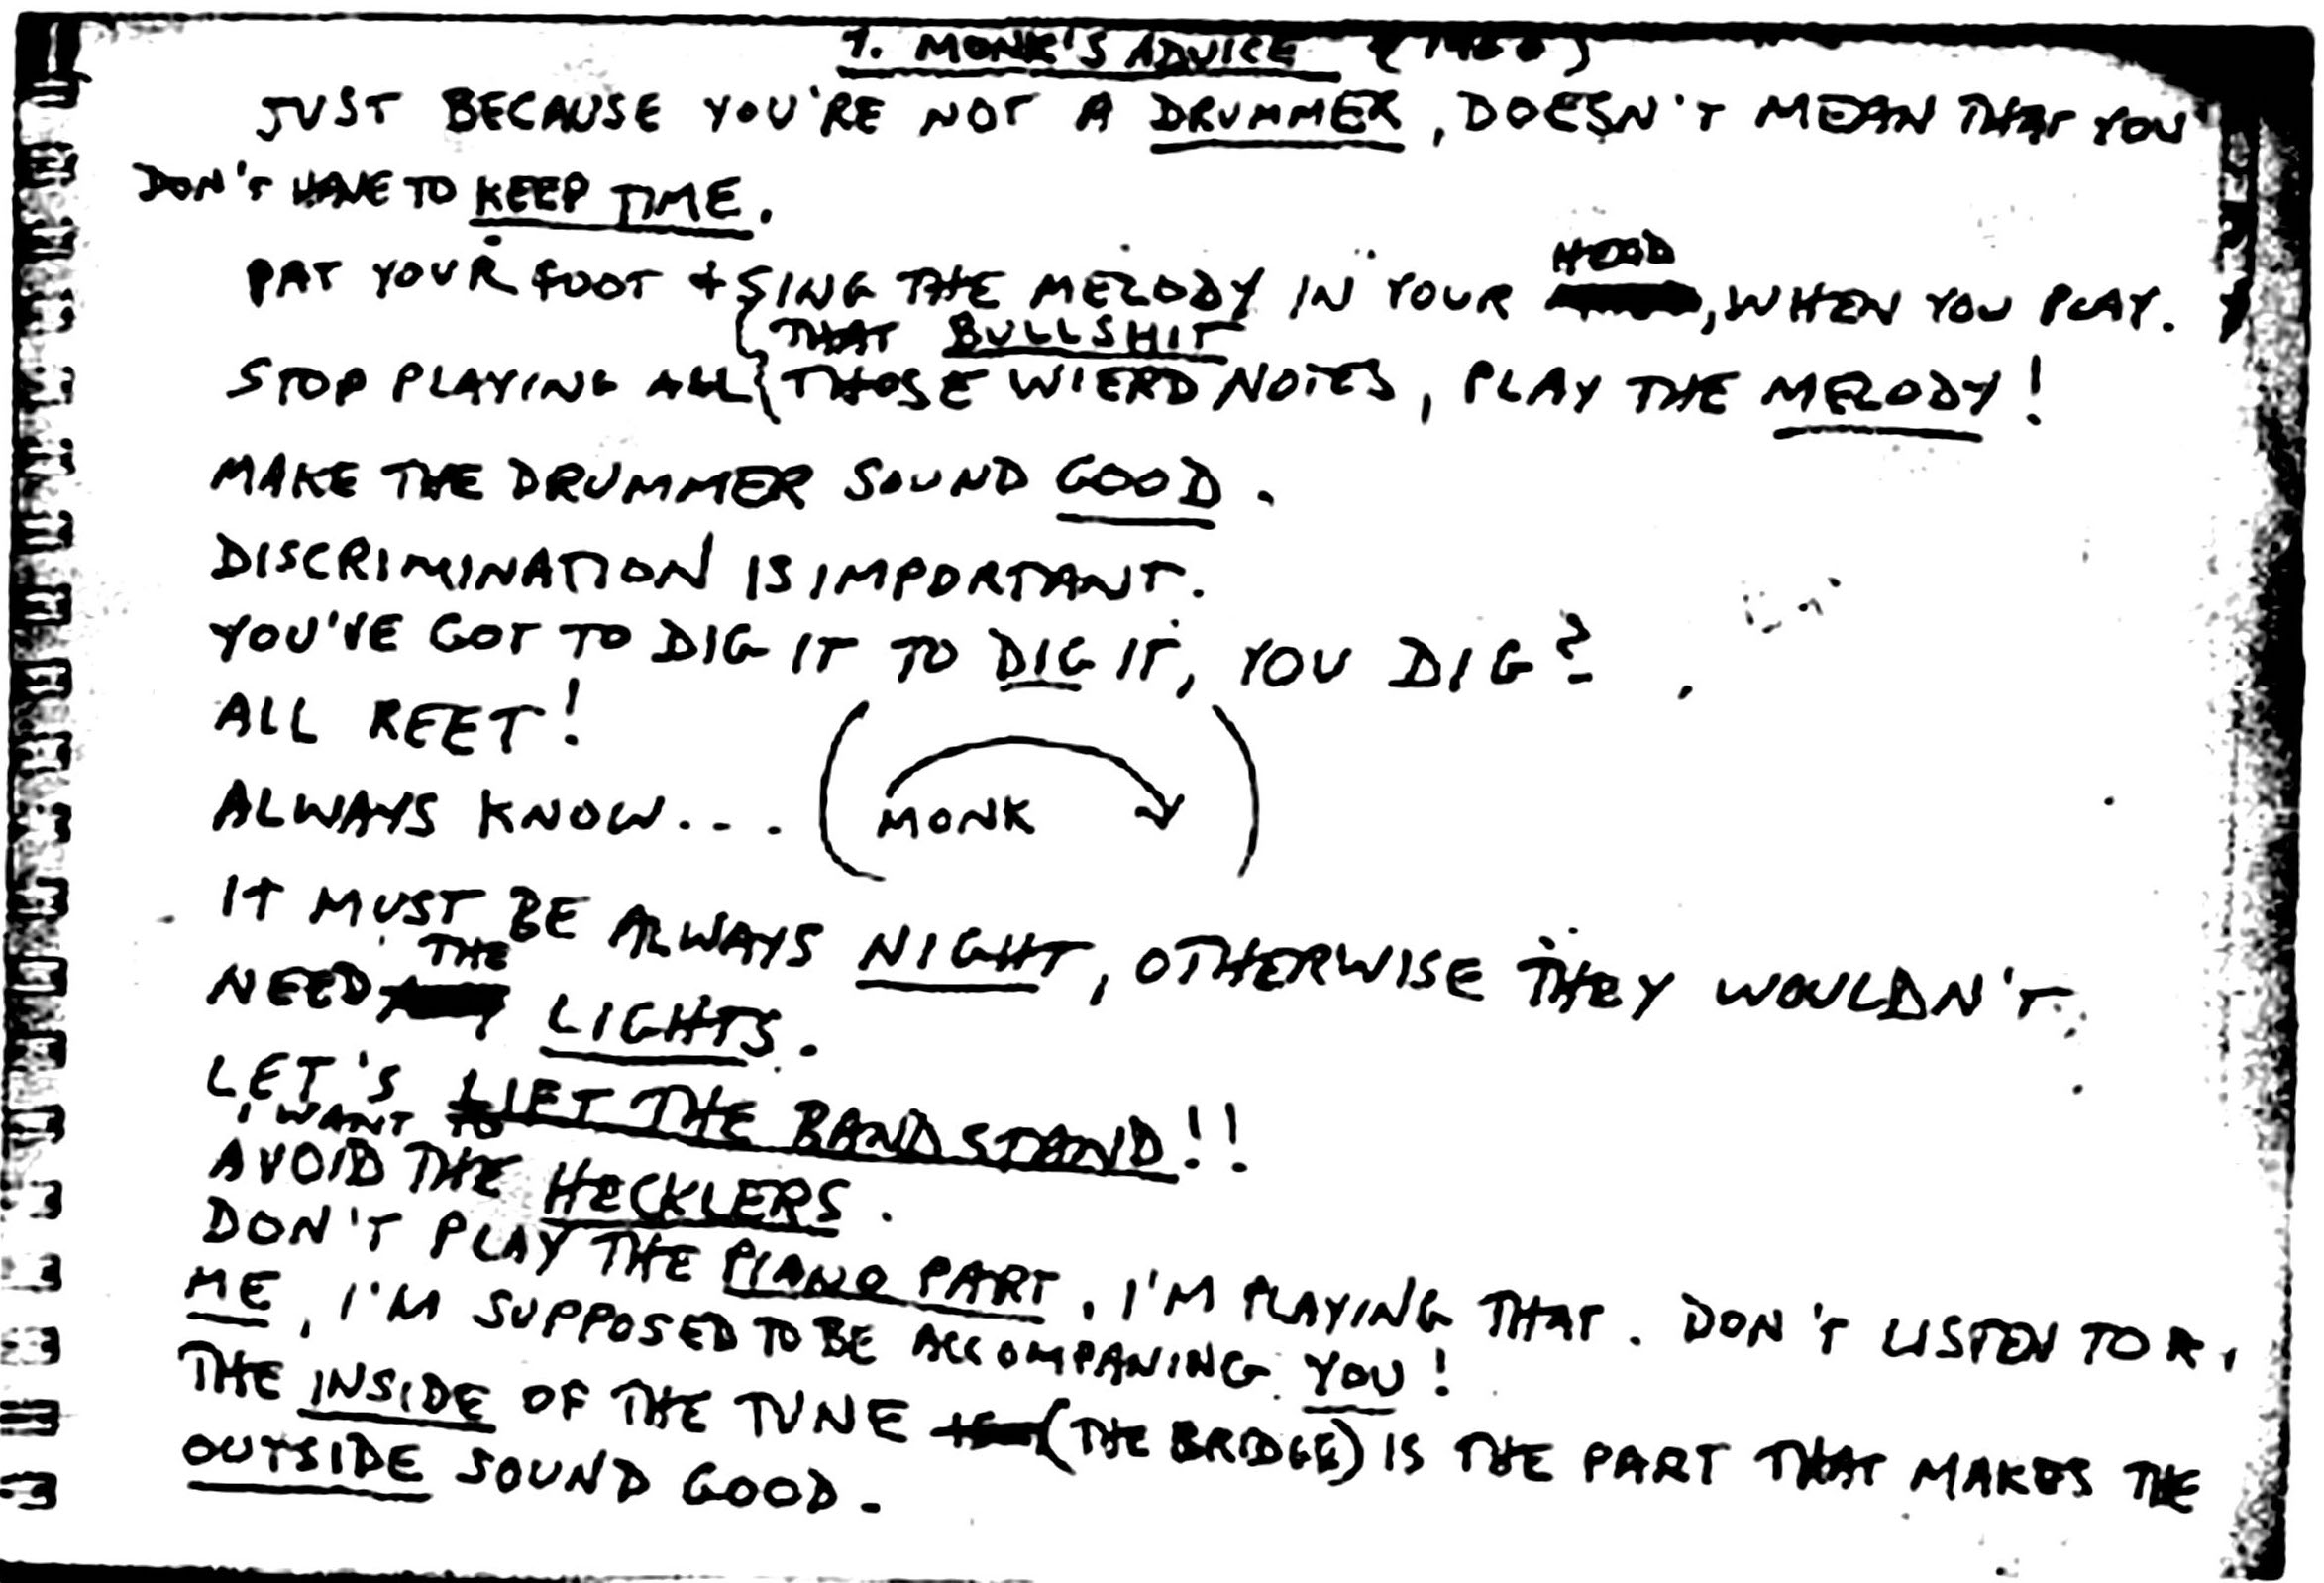 1. MONK'S ADVICE (1960)
JUST BECAUSE YOU'RE NOT A DRUMMER, DOESN'T MEAN THAT YOU
DON'T HAVE TO KEEP TIME.
HEAD
PAT YOUR FOOT + SING THE MELODY IN YOUR , WHEN YOU PLAY.
THAT BULLSHIT
STOP PLAYING ALL { THOSE WIERD NOTES, PLAY THE MELODY!
MAKE THE DRUMMER SOUND GOOD.
DISCRIMINATION IS IMPORTANT.
YOU'VE GOT TO DIG IT TO DIG IT, YOU DIG?
ALL REET!
ALWAYS KNOW... (MONK)
IT MUST BE ALWAYS NIGHT, OTHERWISE THEY WOULDN'T
THE
NEED LIGHTS.
LET'S LIFT THE BAND STAND!!
I WANT TO
AVOID THE HECKLERS.
DON'T PLAY THE PIANO PART, I'M PLAYING THAT. DON'T LISTEN TO
ME, I'M SUPPOSED TO BE ACCOMPANING YOU!
THE INSIDE OF THE TUNE (THE BRIDGE) IS THE PART THAT MAKES THE
OUTSIDE SOUND GOOD.